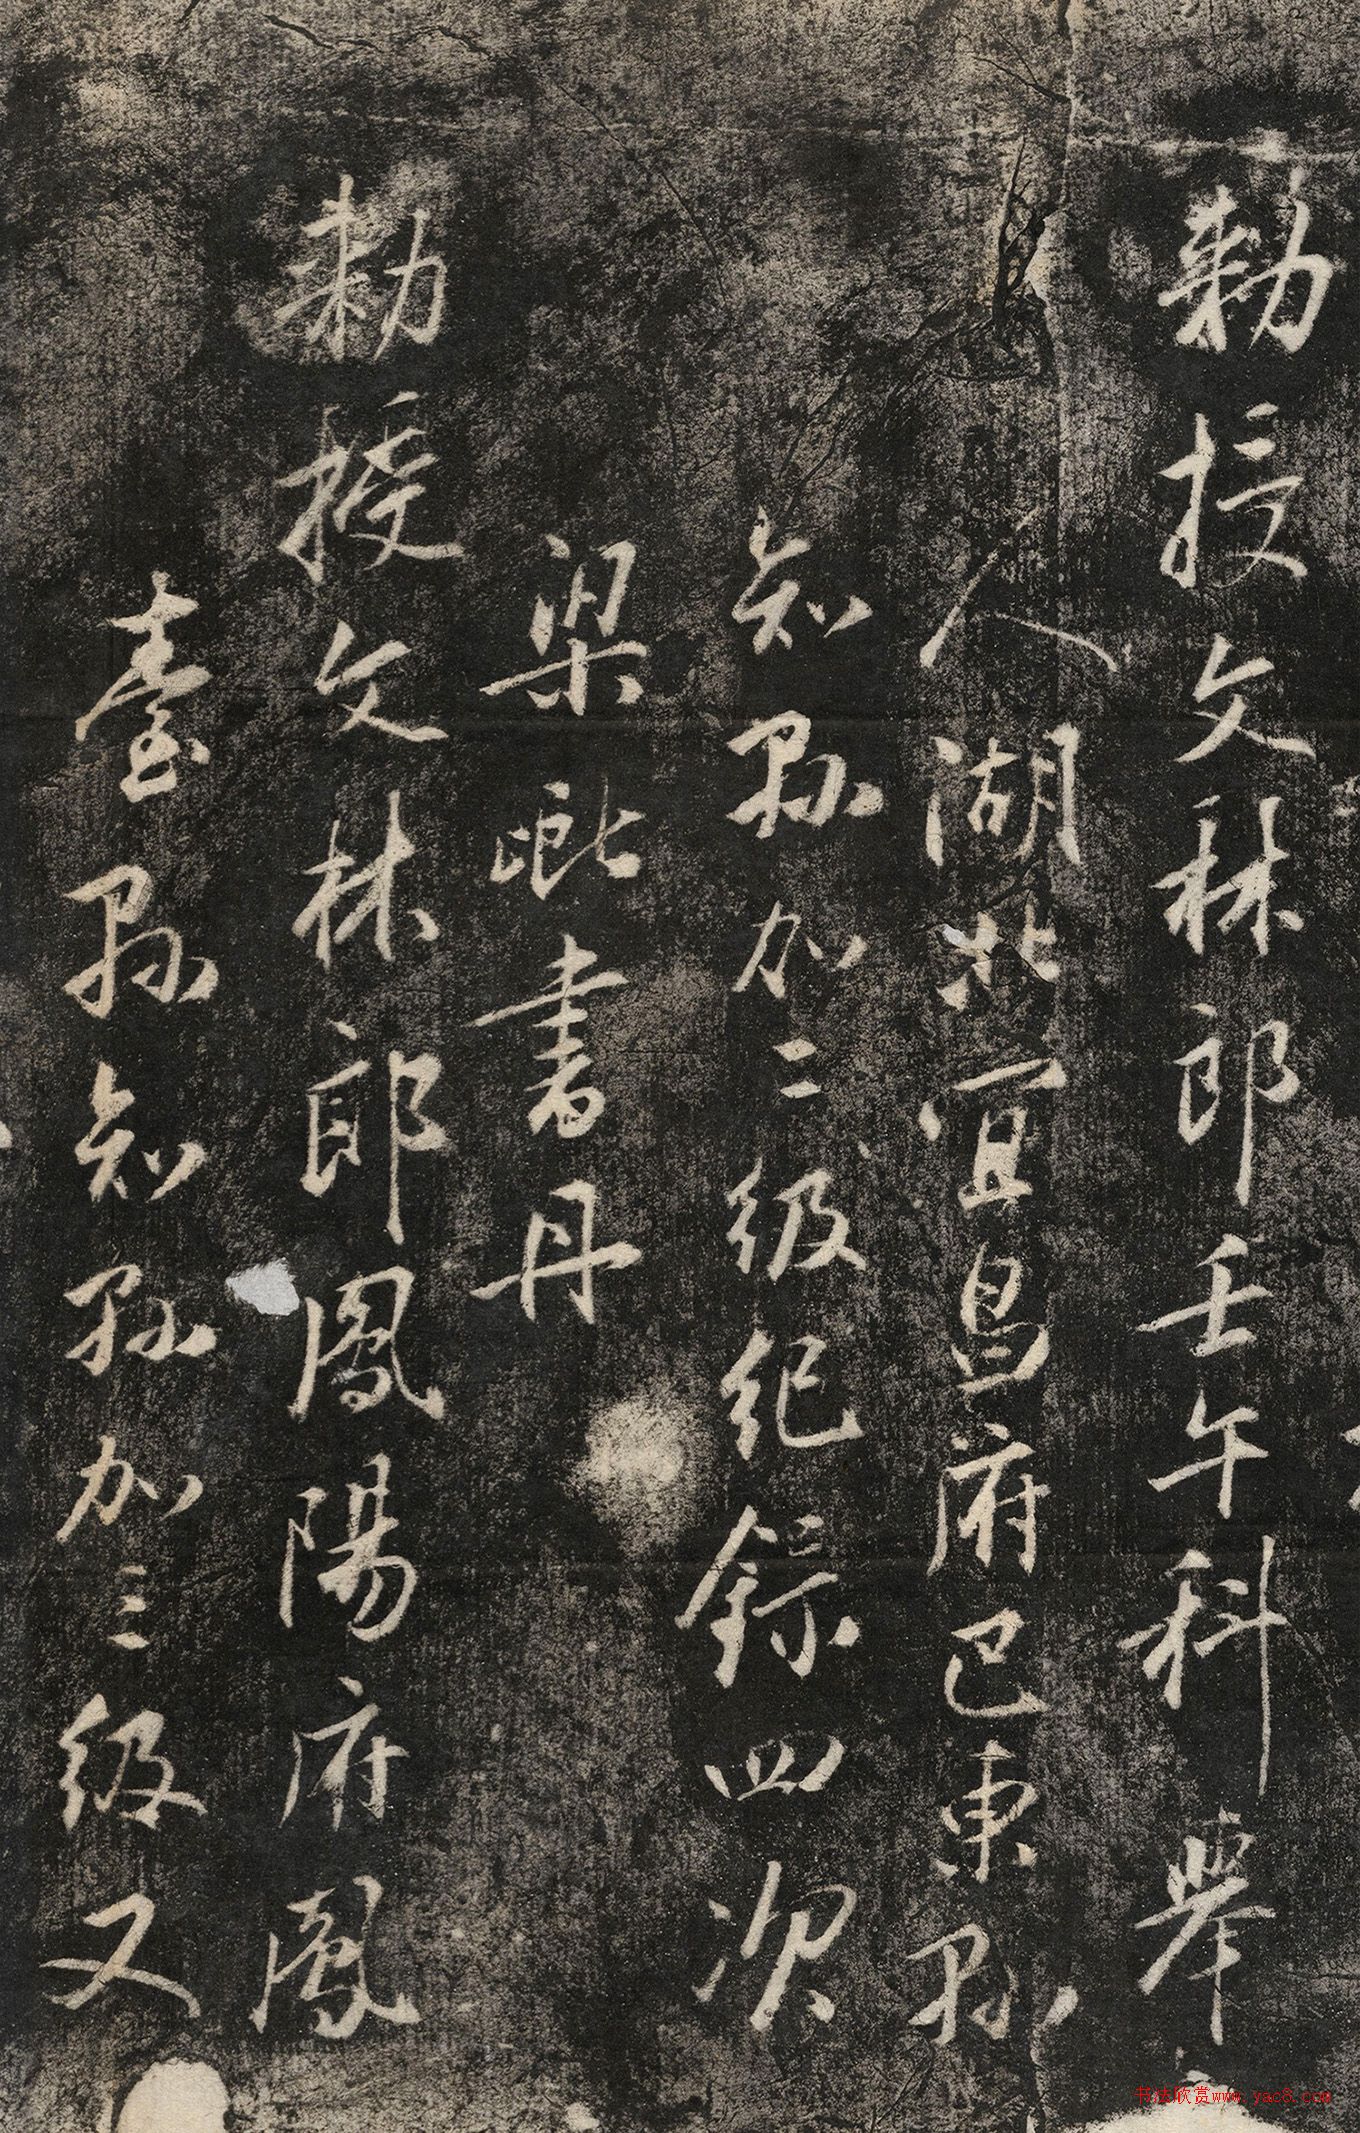 勅授文林郎壬午科舉
人湖北宜昌府巴東縣
知縣加二級紀錄四次
梁巘書丹
勅授文林郎鳳陽府鳳
臺縣知縣加三級又
书法欣赏www.yac8.com